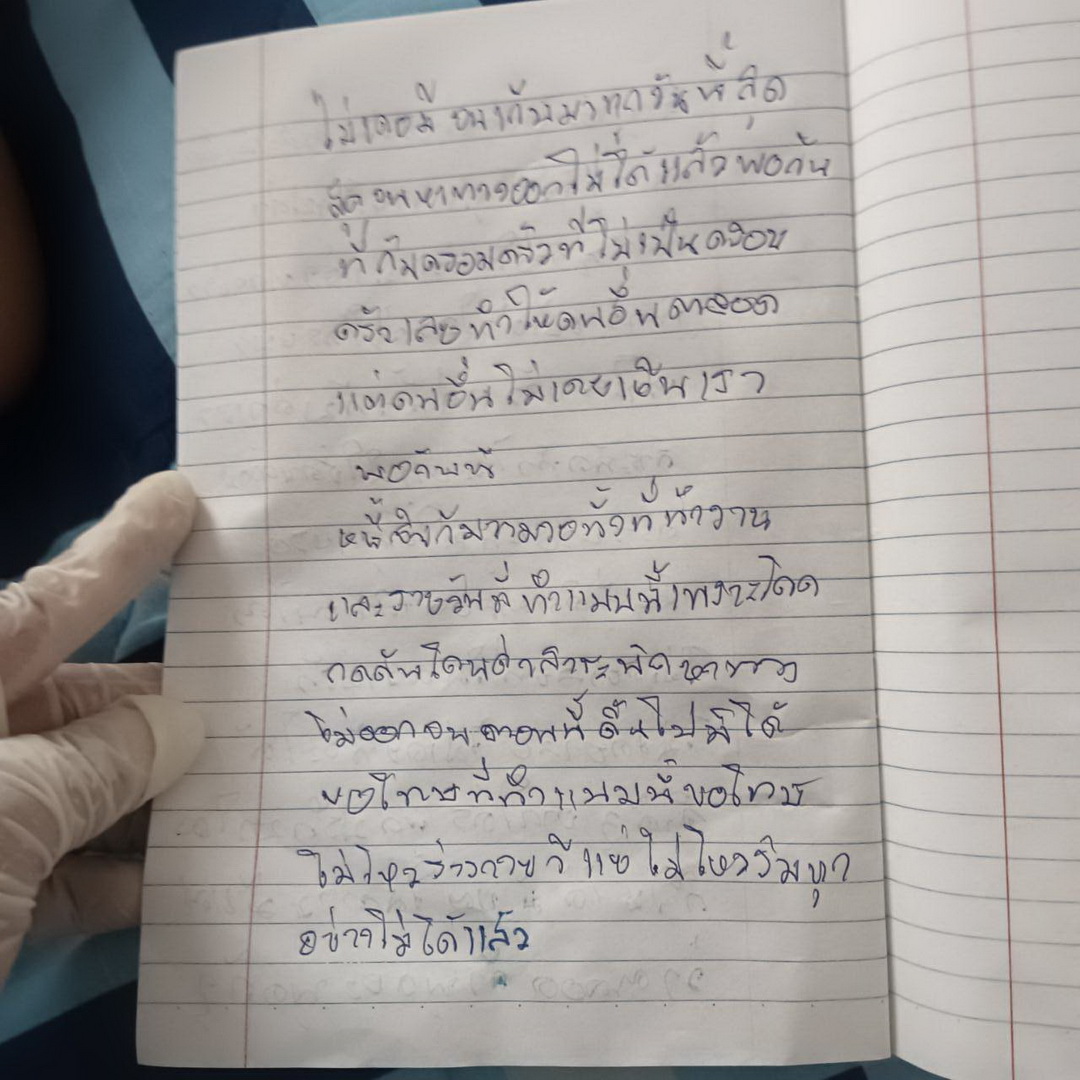 ไม่เคยมี จนเก็บมาทุกวันที่สุด
สุด จนหาทางออกไม่ได้แล้ว พอกัน
ที กับครอบครัวที่ไม่เป็นครอบ
ครัว เลย ทำให้คนอื่นตลอด
แต่คนอื่นไม่เคยเห็นเรา
พอกันที
หนี้สินก็มากมายทั้งที่ทำงาน
และรายวันที่ทำแบบนี้เพราะโดด
กดดันโดนด่าสาระพัดหาทาง
ไม่ออกจน ตอนนี้ดิ้นไปมิได้
ขอโทษที่ทำแบบนี้ขอโทษ
ไม่ไหวร่างกายก็แย่ไม่ไหวรับทุก
อย่างไม่ได้แล้ว